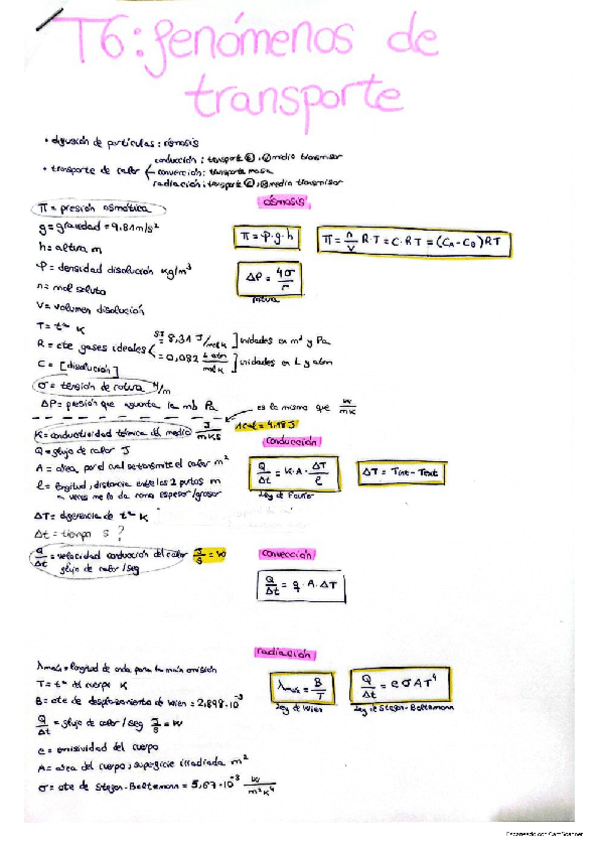 T6: fenómenos de
transporte
• difusión de partículas: ósmosis
• transporte de calor
conducción: transporte E, medio transmisor
convección: transporte masa
radiación: transporte E, medio transmisor
ósmosis
Π = presión osmótica
g = gravedad = 9,81 m/s²
h = altura m
φ = densidad disolución kg/m³
n = mol soluto
V = volumen disolución
T = tª K
R = cte gases ideales
SI = 8,31 J/mol K ] unidades en m³ y Pa
= 0,082 L atm/mol K ] unidades en L y atm
C = [disolución]
σ = tensión de rotura N/m
ΔP = presión que aguanta la mb Pa
Π = φ · g · h
Π = n/V R·T = C·R·T = (CA - CB) RT
ΔP = 4σ/r
rotura
es lo mismo que W/mK
K = conductividad térmica del medio J/mKs
1 cal = 4,18 J
conducción
Q = flujo de calor J
A = area, por el cual se transmite el calor m²
ℓ = longitud, distancia entre las 2 puntas m
ΔT = diferencia de tª K
Δt = tiempo s ?
Q/Δt = velocidad conducción del calor J/s = W
flujo de calor/seg
Q/Δt = K · A · ΔT/ℓ
ΔT = Tint - Text
convección
Q/Δt = q · A · ΔT
radiación
λmáx = longitud de onda para la máx emisión
T = tª del cuerpo K
B = cte de desplazamiento de Wien = 2,898·10⁻³
Q/Δt = flujo de calor/seg J/s = W
e = emisividad del cuerpo
A = area del cuerpo, superficie irradiada m²
σ = cte de Stefan-Boltzmann = 5,67·10⁻⁸ W/m²K⁴
λmáx = B/T
ley de Wien
Q/Δt = e σ A T⁴
ley de Stefan-Boltzmann
Escaneado con CamScanner